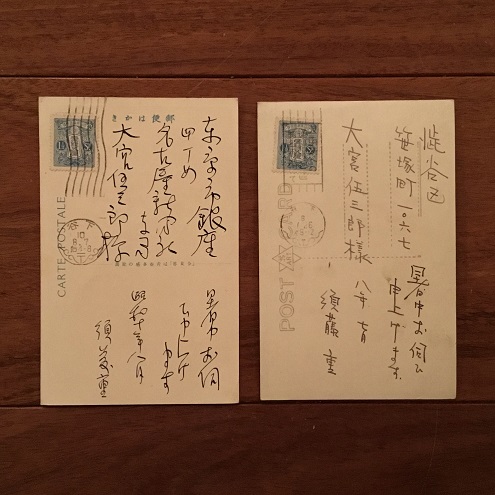 郵便はがき
東京市銀座
四丁め
名古屋新聞社
支局
大宮伍三郎様
暑中お伺
ひ申上げ
ます
昭和十年八月
須藤重
CARTE POSTALE
澁谷区
笹塚町一〇六七
大宮伍三郎様
暑中お伺ひ
申上げます
八年七月
須藤重
POST CARD